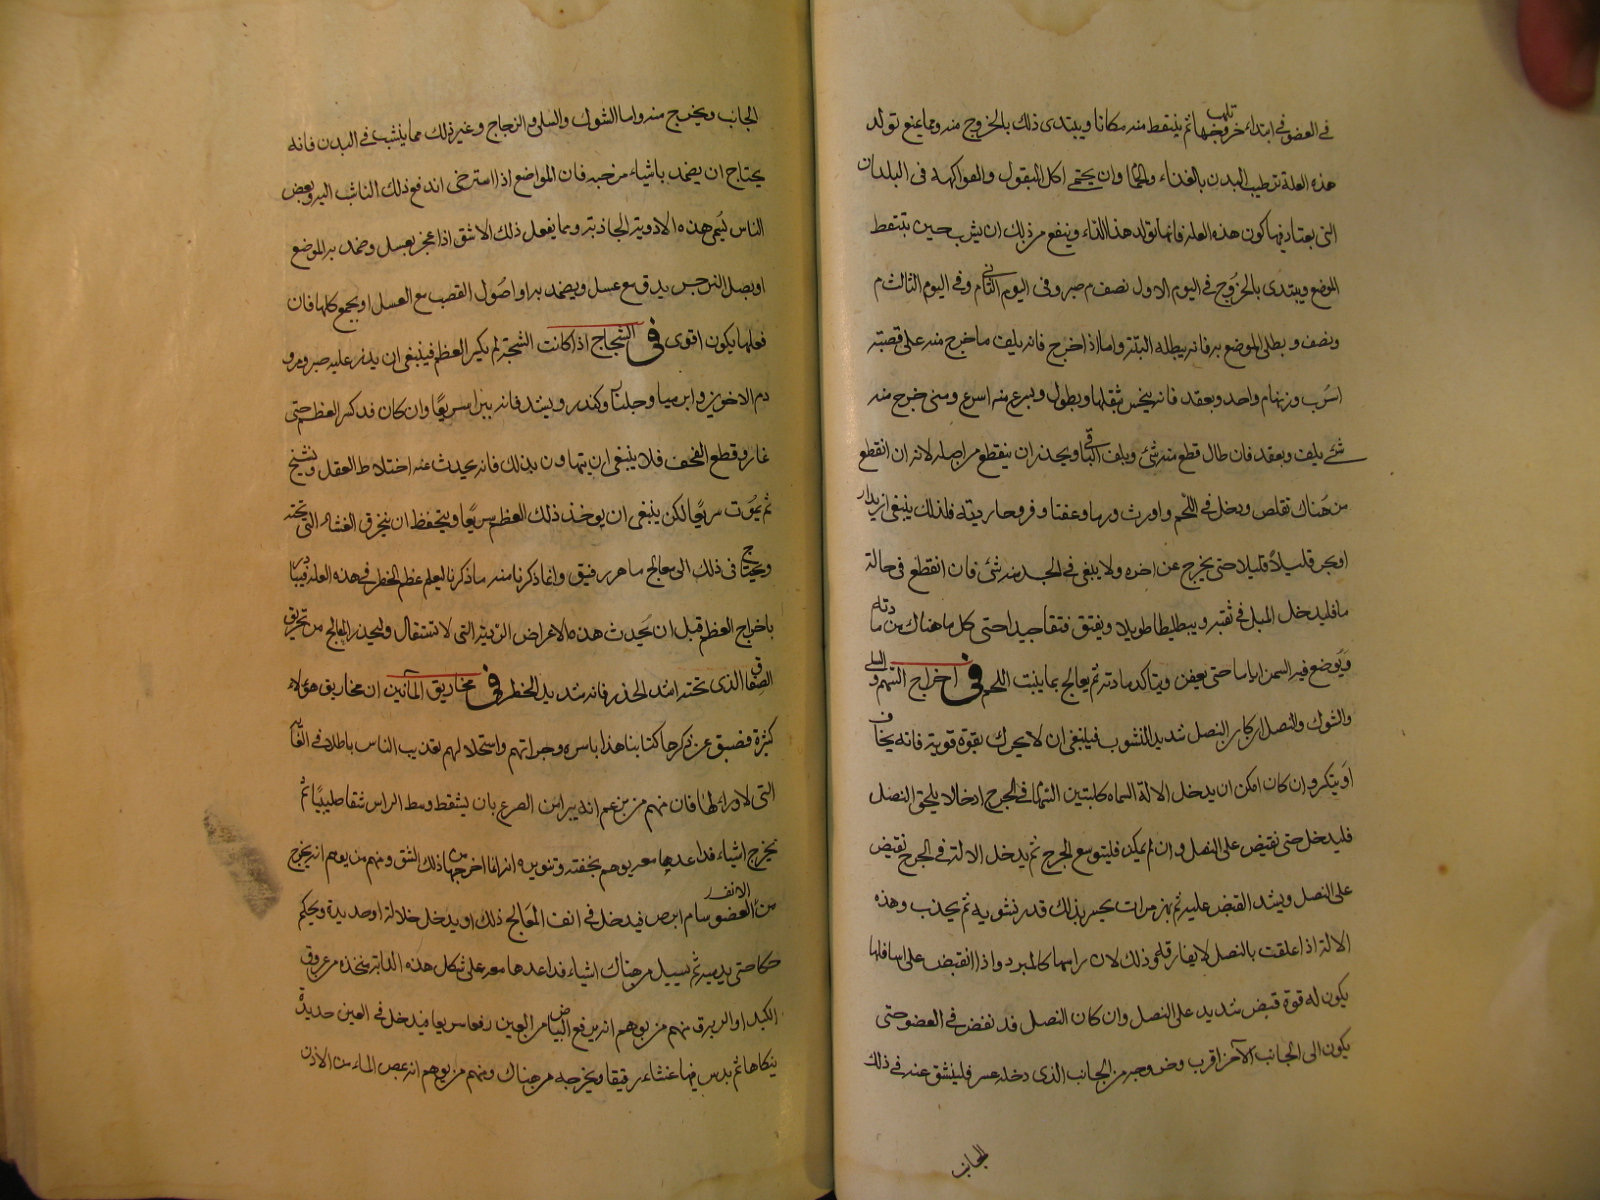 في العضو في ابتداء خروجها تلهب ثم يتنقط منه مكانا ويبتدى ذلك بالخروج منه ومما يمنع تولد
هذه العلة ترطيب البدن بالغذاء والحمام وان يحتمى اكل البقول والفواكه في البلدان
التى يعتاد فيها كون هذه العلة فانها تولد هذا الداء وينفع من ذلك ان يشرب حين يتنقط
الموضع ويبتدى بالخروج في اليوم الاول نصف م صبر وفي اليوم الثاني م وفى اليوم الثالث م
ونصف و يطلى الموضع به فانه يبطله البتة واما اذا خرج فانه يلف ما خرج منه على قصبة
اسرب وزنها م واحد ويعقد فانه ينحس بثقلها ويطول ويسرع منه اسرع ومتى خرج منه
شئ يلف ويعقد فان طال قطع منه شئ ويلف الباقي ويحذر ان ينقطع من اصله لانه ان انقطع
من هناك تقلص ودخل في اللحم واورث ورما وعفنا وقروحا ردية فلذلك ينبغى ان يدار
او يجر قليلاً قليلا حتى يخرج عن اخره ولا يبقى في الجسد منه شئ فان انقطع في حالة
ما فليدخل الميل في ثقبه ويبط بطا طويلا ويفتق فتقا جيدا حتى كل ما هناك من مادته
ويوضع فيه السمن اياما حتى يعفن ويتاكد مادته ثم يعالج بما ينبت اللحم في اخراج السهم والسلى
والشوك والنصل ان كان النصل شديد النشوب فينبغى ان لا يحرك بقوة قوية فانه يخاف
او يتكسر وان كان امكن ان يدخل الالة المسماه كلبتين السهام في الجرح ادخالا يلحق النصل
فليدخل حتى تقبض على النصل وان لم يمكن فليتوسع الجرح ثم يدخل الالة في الجرح تقبض
على النصل ويشد القبض عليه ثم يهز مرات يحس بذلك قدر نشوبه ثم يجذب وهذه
الالة اذا علقت بالنصل لا يفارقه وذلك لان راسها كالمبرد واذا انقبض على اسافلها
يكون له قوة قبض شديد على النصل وان كان النصل قد نفض في العضو حتى
يكون الى الجانب الآخر اقرب وخروجه من الجانب الذى دخله عسر فلينشق عنه في ذلك
الجانب
الجانب ويخرج منه واما الشوك والسلى والزجاج وغير ذلك مما ينشب في البدن فانه
يحتاج ان يضمد باشياء مرخيه فان المواضع اذا استرخى اندفع ذلك الناشب اليه وبعض
الناس يسمى هذه الادوية الجاذبة ومما يفعل ذلك الاشق اذا عجن بعسل وضمد به الموضع
او بصل النرجس يدق مع عسل ويضمد به او اصول القصب مع العسل او يجمع كلها فان
فعلها يكون اقوى في الشجاج اذا كانت الشجة لم يكسر العظم فينبغى ان يذر عليه صبر ومر و
دم الاخوين وابرسيا وجلنار وكندر ويشد فانه يبرا سريعًا وان كان قد كسر العظم حتى
غار وقطع القحف فلا ينبغى ان يتهاون بذلك فانه يحدث عنه اختلاط العقل وتشنج
ثم يموت سريعًا لكن ينبغى ان يوخذ ذلك العظم سريعًا ويتحفظ ان ينخرق الغشاء التى تحته
ويحتاج في ذلك الى معالج ماهر رفيق وانما ذكرنا منه ما ذكرنا ليعلم عظم الخطر في هذه العلة فيبادر
باخراج العظم قبل ان يحدث هذه الاعراض الردية التى لا تستقال وليحذر المعالج من تخريق
الصفاق الذى تحته اشد الحذر فانه شديد الخطر في مخاريق المآنين ان مخاريق هؤلاء
كثيرة فضيق عن ذكرها كتابنا هذا باسره وجراتهم واستحلالهم بعذيب الناس باطلا في الغاية
التى لا وراء لها فان منهم من يزعم انه يبرا من الصرع بان يشقط وسط الراس شقا صليبيًا ثم
يخرج اشياء قد اعدها معه يوهم بخفته وتنويره انه انما اخرجها من ذلك الشق ومنهم من يوهم انه يخرج
من الانف العضو سام ابرص فيدخل في انف المعالج ذلك او يدخل خلالة او حديدة ويحكم
حكا حتى يدميه ثم يسيل من هناك اشياء قد اعدها معه على شكل هذه الدابة متخذه من عروق
الكبد او البربرى ومنهم من يوهم انه يرفع البياض من العين رفعا سريعا فيدخل في العين حديدة
ينكاها ثم يدس فيها غشاء رقيقا ويخرجه من هناك ومنهم من يوهم انه يمص الماء من الاذن